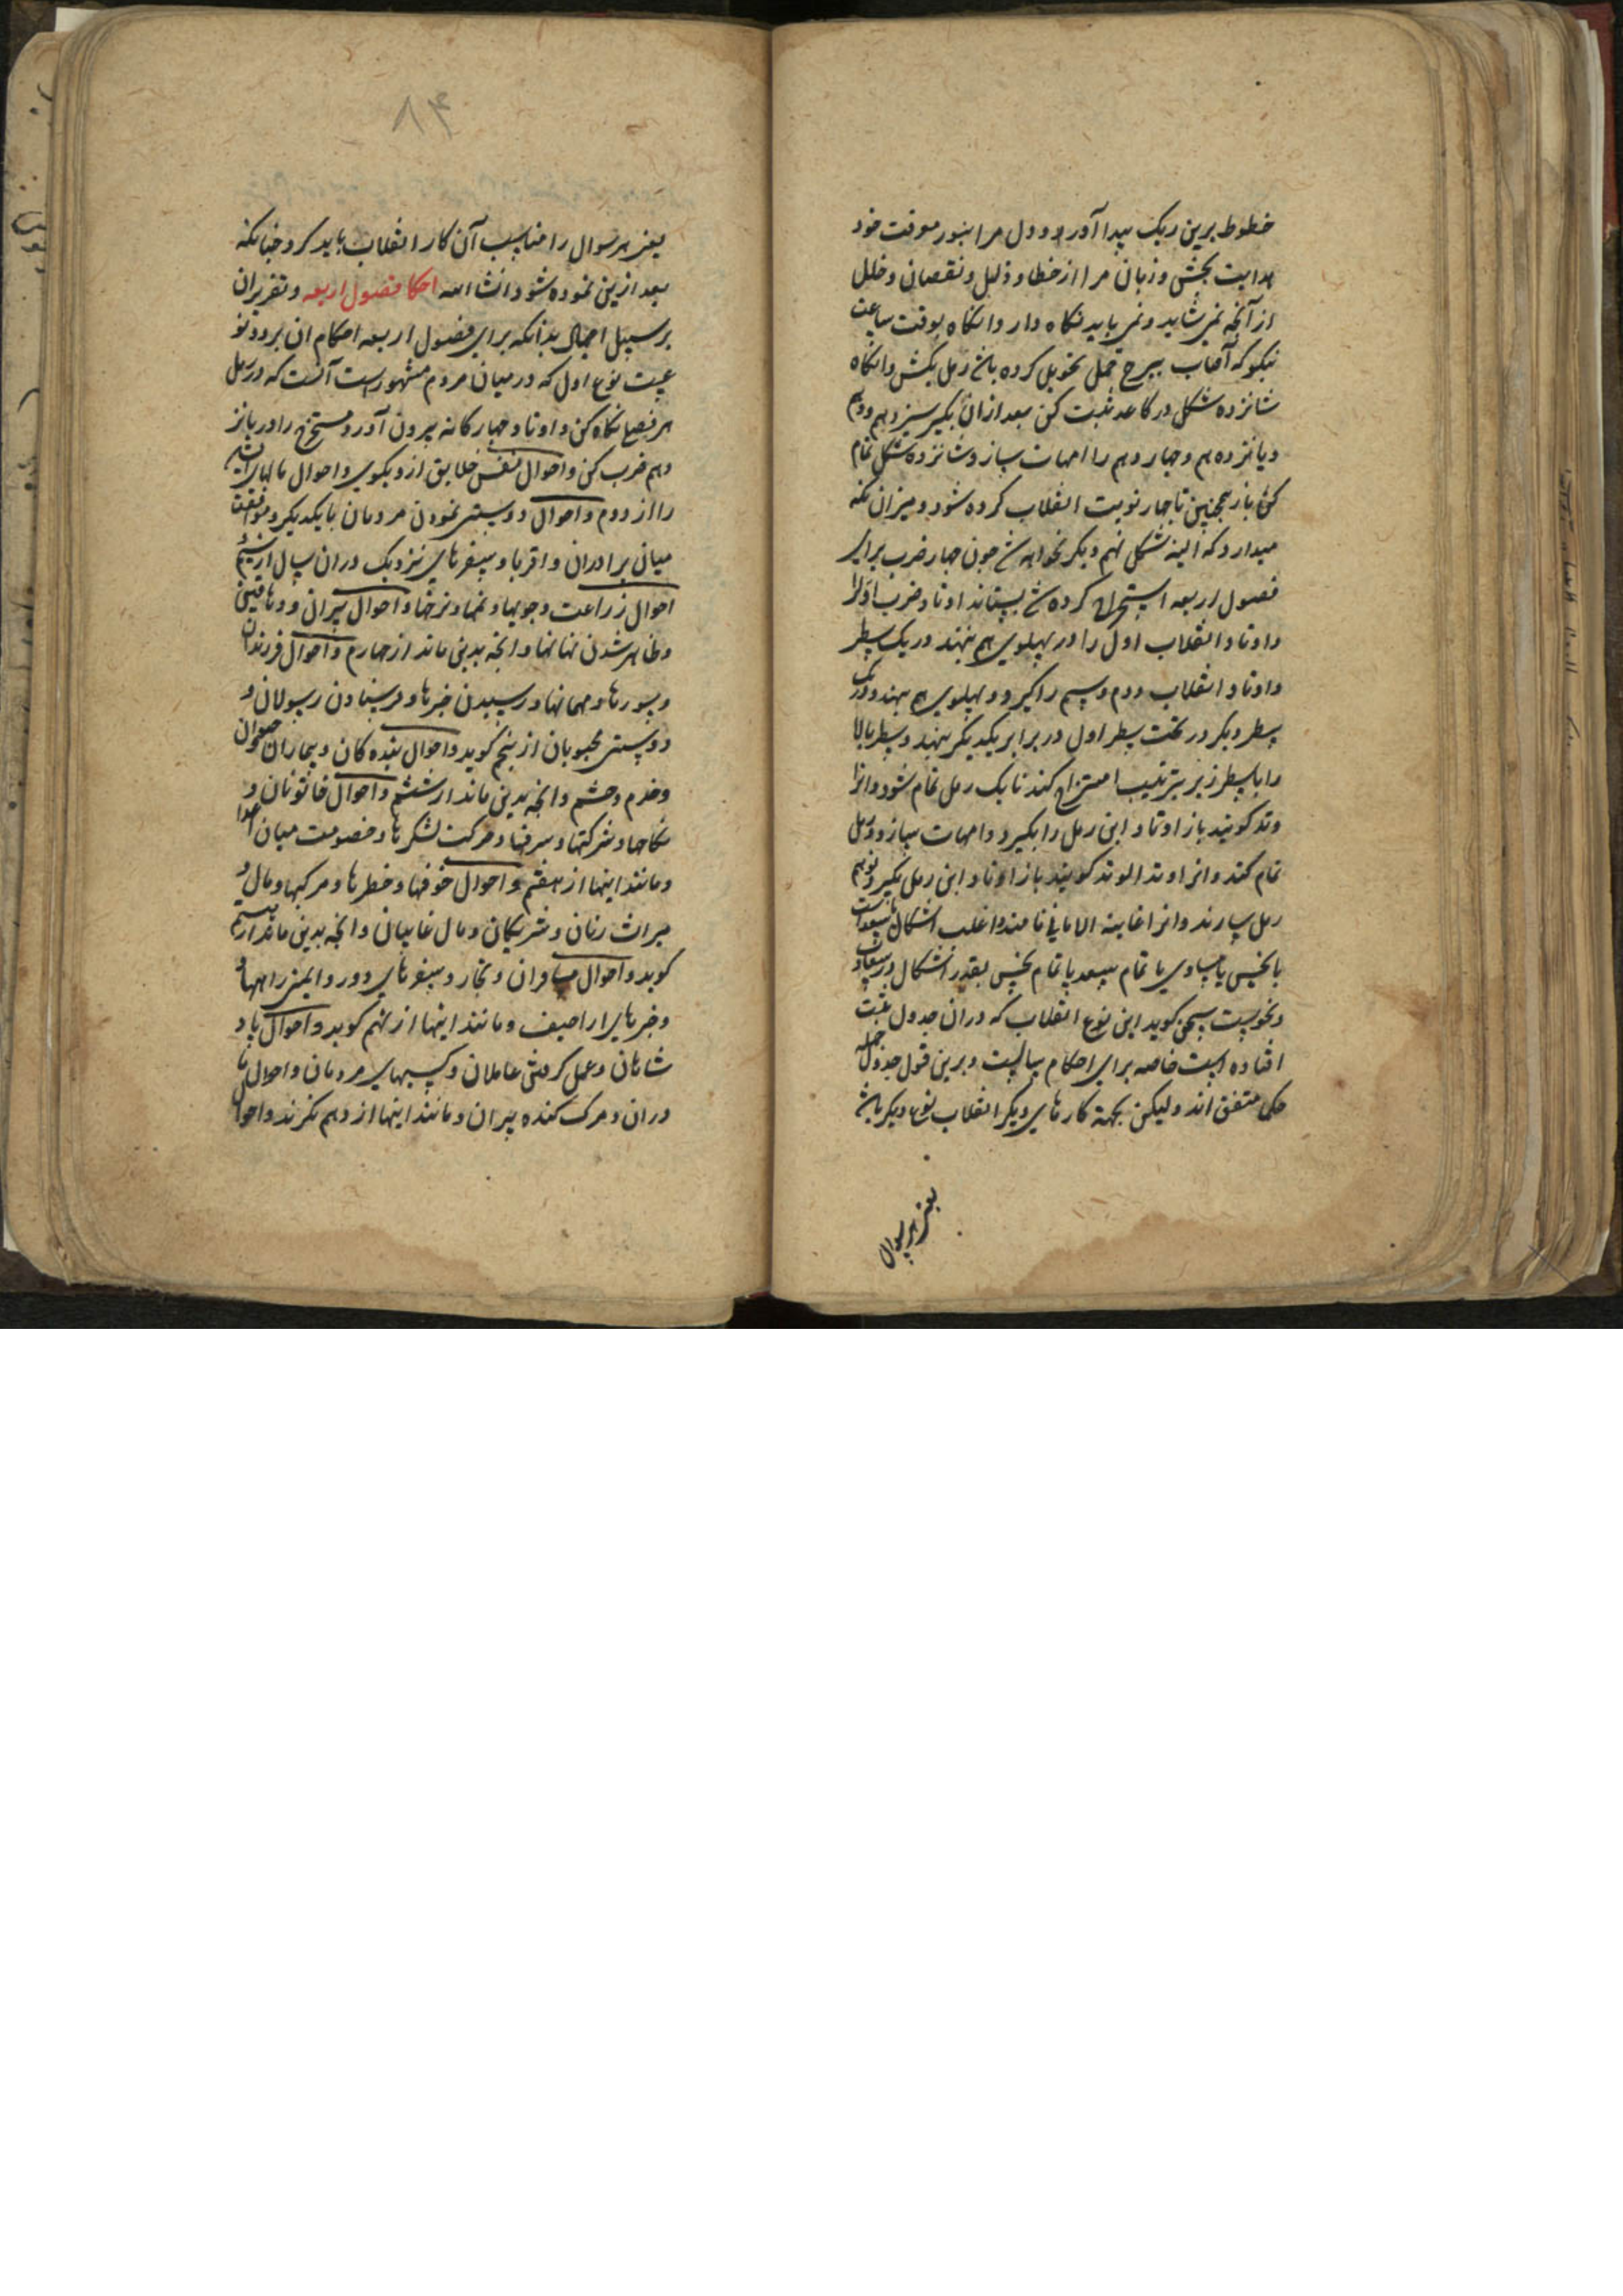 خطوط برین ریک پیدا آور و دل مرا بنور معرفت خود
هدایت بخش و زبان مرا از خطا و ذلیل و نقصان و خلل
از آنچه نمی شاید و نمی باید نکاه دار وانکاه بوقت ساعت
نیکو که آفتاب ببرج حمل تحویل کرده باشد رمل بکش وانکاه
شانزده شکل در کاغد ثبت کن بعد ازان بکیر سیزدهم ودهم
و پانزدهم و چهاردهم را امهات بساز و شانزده شکل تمام
کن باز همچنین تا چهار نوبت انقلاب کرده شود و میزان نکه
میدارد که البته شکل نهم دیکر نخواهد شد چون چهار ضرب برای
فصول اربعه استخراج کرده شد بستاند اوتاد ضرب اول را
و اوتاد انقلاب اول را در پهلوی هم بنهند در یک سطر
و اوتاد انقلاب دوم و سیم را کیرد و پهلوی هم بنهد و در یک
سطر دیکر در تحت سطر اول در برابر یکدیکر بنهد و سطر بالا
را با سطر زیر بترتیب امتزاج کند تا یک رمل تمام شود و انرا
وتد کویند باز اوتاد این رمل را بکیرد و امهات سازد و رمل
تمام کند و انرا وتد الوتد کویند باز اوتاد این رمل بکیرد و نهم
رمل سازند و انرا غایة الامانی نامند و اغلب اشکال یا سعد است
یا نحس یا مساوی یا تمام سعد یا تمام نحس بقدر اشکال در سعادت
و نحوست سخن کوید این نوع انقلاب که دران جدول ثبت
افتاده است خاصه برای احکام سالست و برین قول جدول جمله
حکما متفق اند ولیکن بجهة کارهای دیکر انقلاب نوع دیکر باشد
یعنی هر سوال
۸۴
یعنی هر سوال را مناسب آن کار انقلاب باید کرد چنانکه
بعد ازین نموده شود انشا الله احکام فصول اربعه و تقریران
بر سبیل اجمال بدانکه برای فصول اربعه احکام ان بر دو نو
عیست نوع اول که در میان مردم مشهور است آنست که در رمل
هر فصلی نکاه کن و اوتاد چهارکانه بیرون آور و مستخرج را در پانز
دهم ضرب کن و احوال نفس خلایق ازو بکوی و احوال مالهای
را از دوم و احوال دوستی نمودن مردمان با یکدیکر و موافقت
میان برادران و اقربا و سفرهای نزدیک دران سال از سیم
احوال زراعت و جویها و نمها و نرخها و احوال پیران و دهاقین
و ظاهر شدن نهانها و انچه بدین ماند از چهارم و احوال فرزندان
و سورها و مهمانها و رسیدن خبرها و فرستادن رسولان و
دوستی محبوبان از پنجم کوید و احوال بنده کان و بیماران و حیوان
و خدم و حشم و انچه بدین ماند از ششم و احوال خاتونان و
نکاحها و شرکتها و سرقها و حرکت لشکرها و خصومت میان اعدا
و مانند اینها از هفتم و احوال خوفها و خطرها و مرکبها و مال و
میراث زنان و شریکان و مال غایبان و انچه بدین ماند از هشتم
کوید و احوال مسافران و تجار و سفرهای دور و ایمنی راهها و
و خبرهای اراجیف و مانند اینها از نهم کوید و احوال پاد
شاهان و عمل کرفتن عاملان و کسبهای مردمان و احوال ما
دران و مرک کنده پیران و مانند اینها از دهم نکرند و احوا